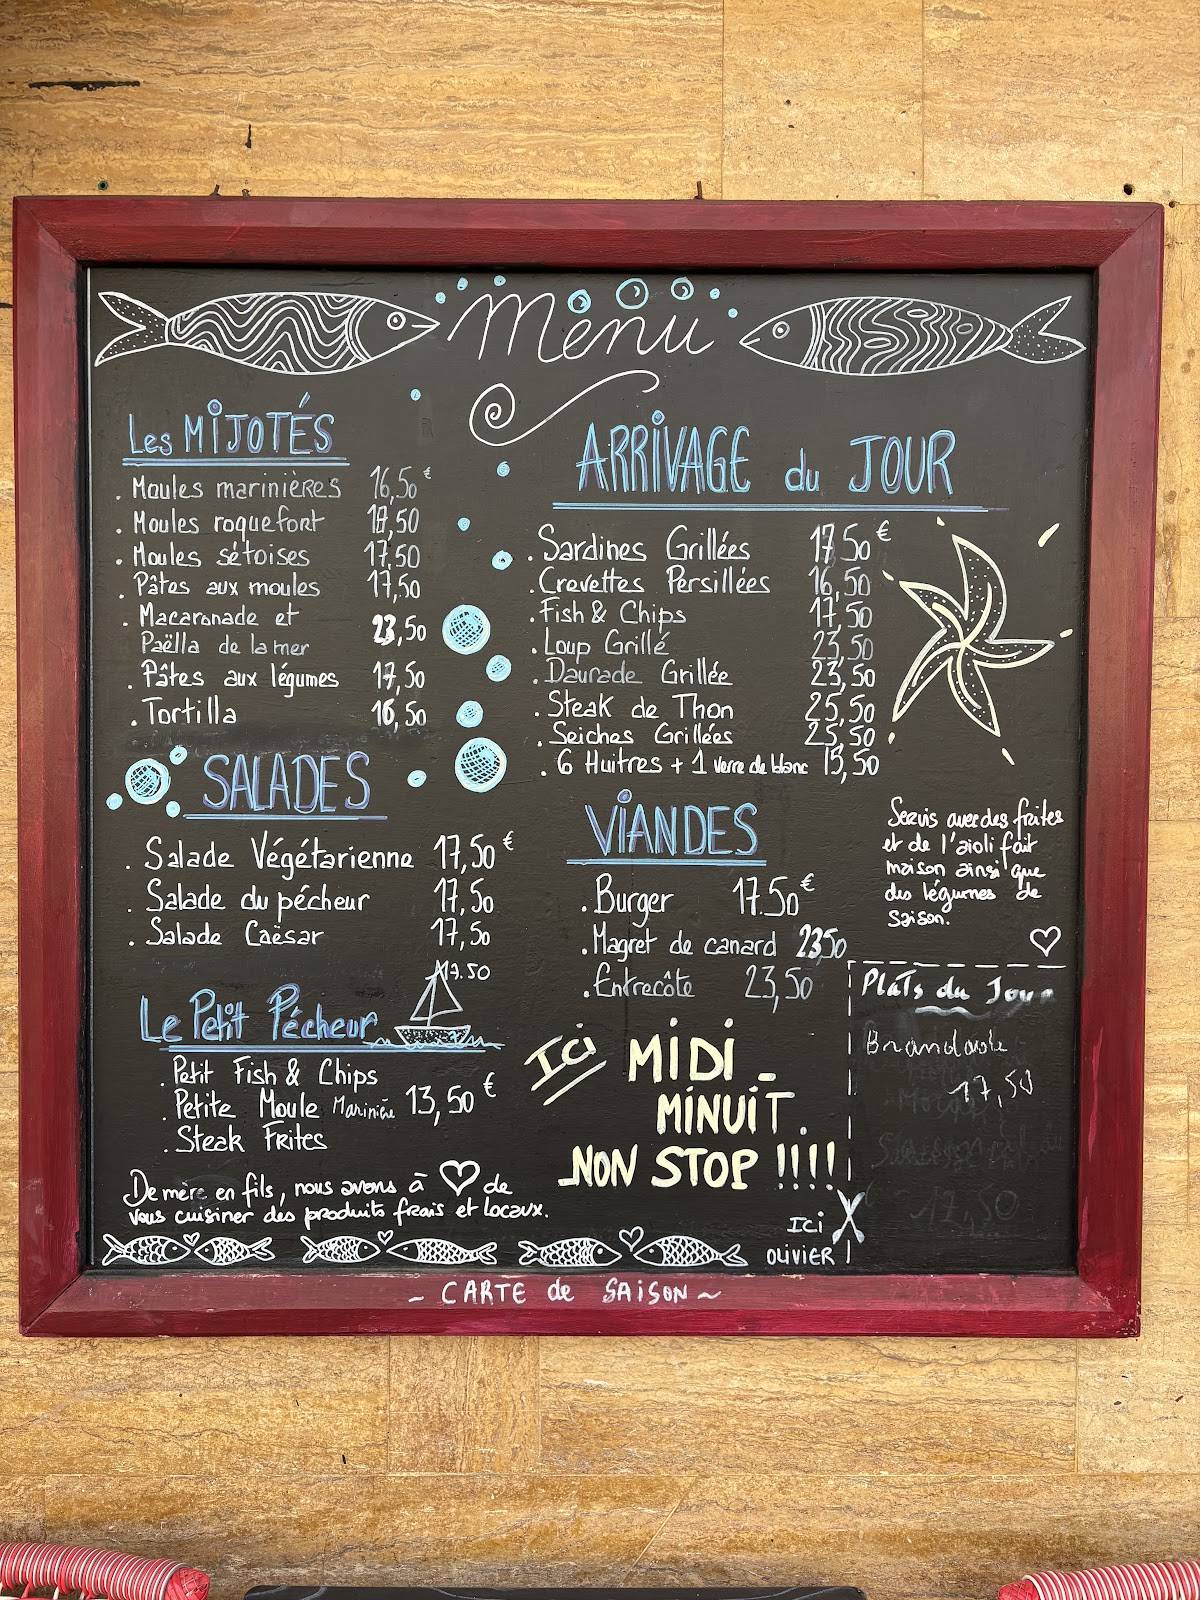 Menu
Les MIJOTÉS
. Moules marinières 16,50 €
. Moules roquefort 18,50
. Moules sétoises 17,50
. Pâtes aux moules 17,50
. Macaronade et
Paëlla de la mer 23,50
. Pâtes aux légumes 17,50
. Tortilla 16,50
SALADES
. Salade Végétarienne 17,50 €
. Salade du pécheur 17,50
. Salade Caësar 17,50
17.50
Le Petit Pécheur
. Petit Fish & Chips
. Petite Moule Marinière 13,50 €
. Steak Frites
De mère en fils, nous avons à ♡ de
vous cuisiner des produits frais et locaux.
ARRIVAGE du JOUR
. Sardines Grillées 17,50 €
. Crevettes Persillées 16,50
. Fish & Chips 17,50
. Loup Grillé 23,50
. Daurade Grillée 23,50
. Steak de Thon 25,50
. Seiches Grillées 25,50
. 6 Huitres + 1 verre de blanc 15,50
Servis avec des frites
et de l'aïoli fait
maison ainsi que
des légumes de
saison.
VIANDES
. Burger 17.50 €
. Magret de canard 23,50
. Entrecôte 23,50
Plats du Jour
Brandade
17,50
17,50
Ici MIDI -
MINUIT.
NON STOP !!!!
ICI
OLIVIER !
~ CARTE de SAISON ~